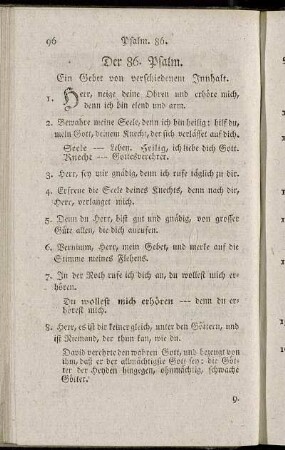 96 Psalm. 86.
Der 86. Psalm.
Ein Gebet von verschiedenem Innhalt.
1. Herr, neige deine Ohren und erhöre mich,
denn ich bin elend und arm.
2. Bewahre meine Seele, denn ich bin heilig: hilf du,
mein Gott, deinem Knecht, der sich verlässet auf dich.
Seele — Leben. Heilig, ich liebe dich Gott.
Knecht — Gottesverehrer.
3. Herr, sey mir gnädig, denn ich rufe täglich zu dir.
4. Erfreue die Seele deines Knechts, denn nach dir,
Herr, verlanget mich.
5. Denn du Herr, bist gut und gnädig, von grosser
Güte allen, die dich anrufen.
6. Vernimm, Herr, mein Gebet, und merke auf die
Stimme meines Flehens.
7. In der Noth rufe ich dich an, du wollest mich er-
hören.
Du wollest mich erhören — denn du er-
hörest mich.
8. Herr, es ist dir keiner gleich, unter den Göttern, und
ist Niemand, der thun kan, wie du.
David verehrte den wahren Gott, und bezeugt von
ihm, daß er der allmächtigste Gott sey: die Göt-
ter der Heyden hingegen, ohnmächtig, schwache
Götter.
9.